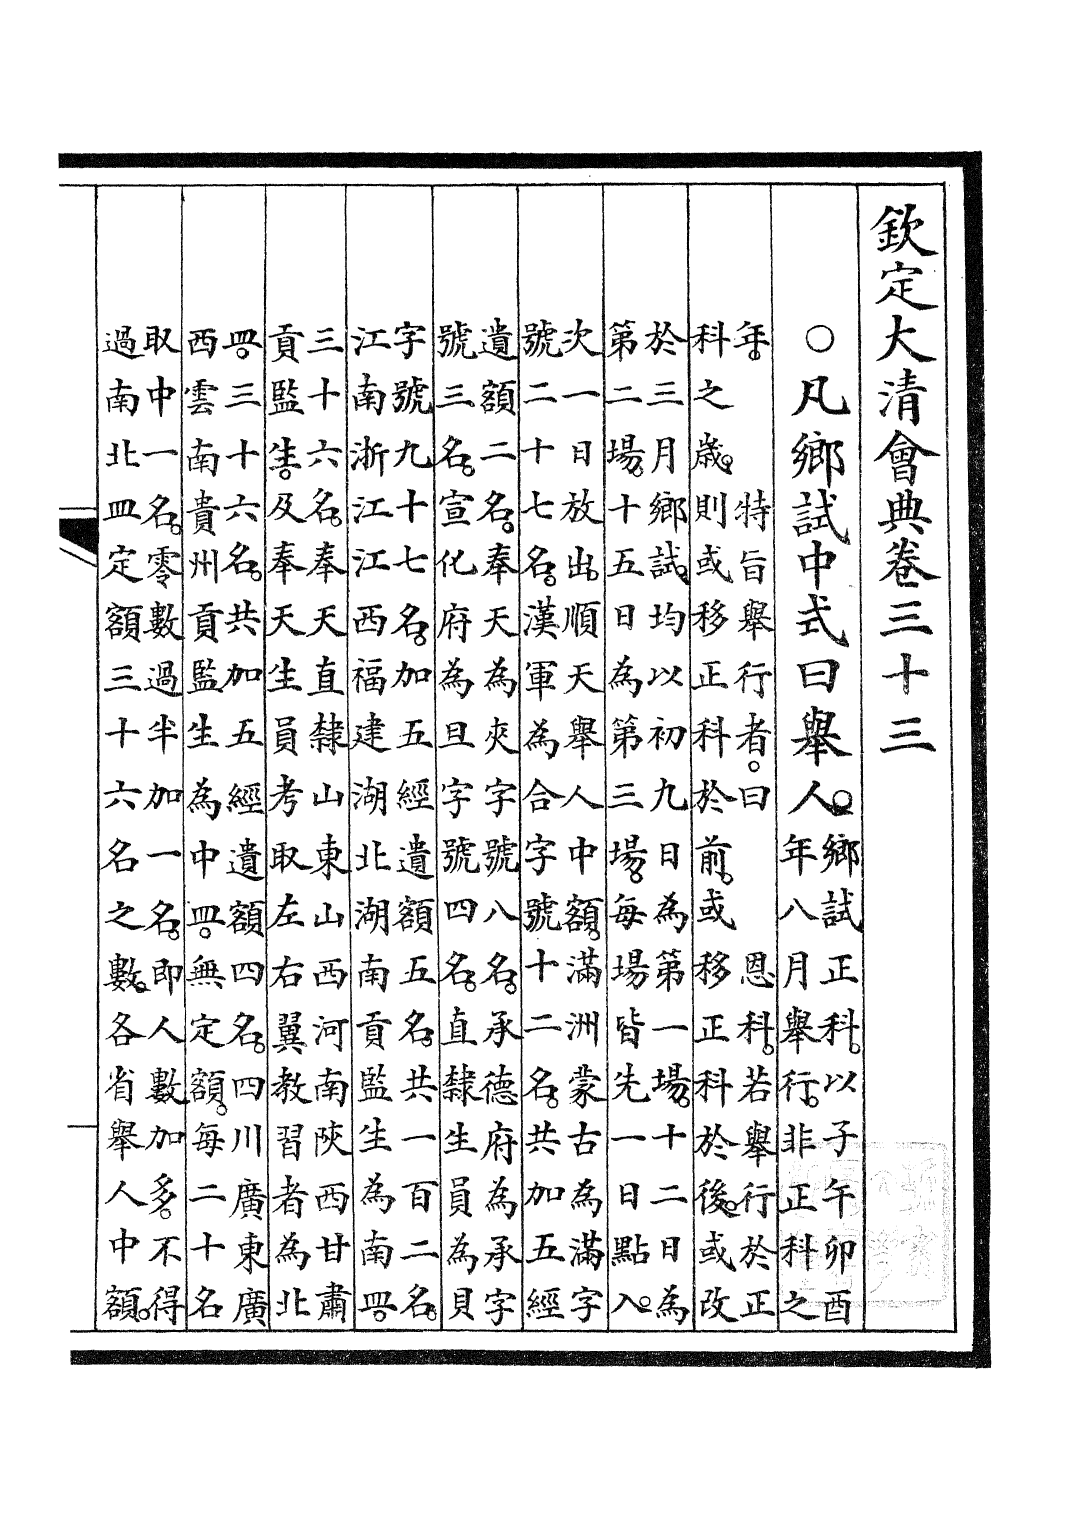 欽定大清會典卷三十三
○凡鄉試中式曰舉人。
鄉試正科。以子午卯酉
年八月舉行。非正科之
年。特旨舉行者。曰恩科。若舉行於正
科之歲。則或移正科於前。或移正科於後。或改
於三月鄉試。均以初九日為第一場。十二日為
第二場。十五日為第三場。每場皆先一日點入。
次一日放出。順天舉人中額。滿洲蒙古為滿字
號二十七名。漢軍為合字號十二名。共加五經
遺額二名。奉天為夾字號八名。承德府為承字
號三名。宣化府為旦字號四名。直隸生員為貝
字號九十七名。加五經遺額五名。共一百二名。
江南浙江江西福建湖北湖南貢監生為南皿。
三十六名。奉天直隸山東山西河南陝西甘肅
貢監生。及奉天生員考取左右翼教習者為北
皿。三十六名。共加五經遺額四名。四川廣東廣
西雲南貴州貢監生為中皿。無定額。每二十名
取中一名。零數過半加一名。即人數加多。不得
過南北皿定額三十六名之數。各省舉人中額。